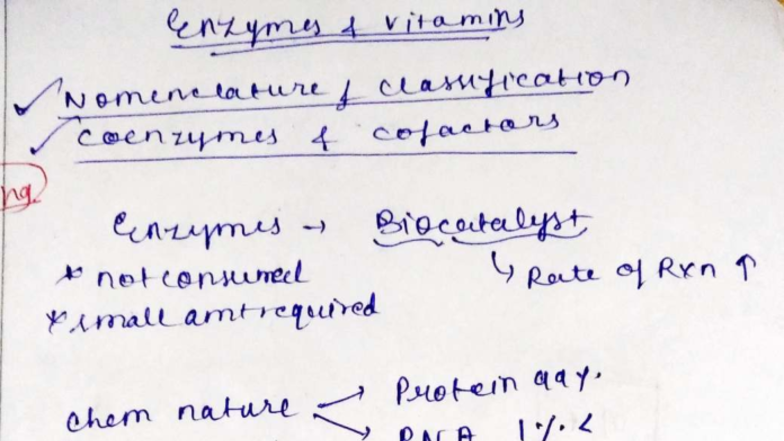 Enzymes & vitamins
✓ Nomenclature & classification
✓ coenzymes & cofactors
ng
Enzymes → Biocatalyst
↳ Rate of Rxn ↑
* not consumed
* small amt required
chem nature → Protein 99%.
→ RNA 1% <